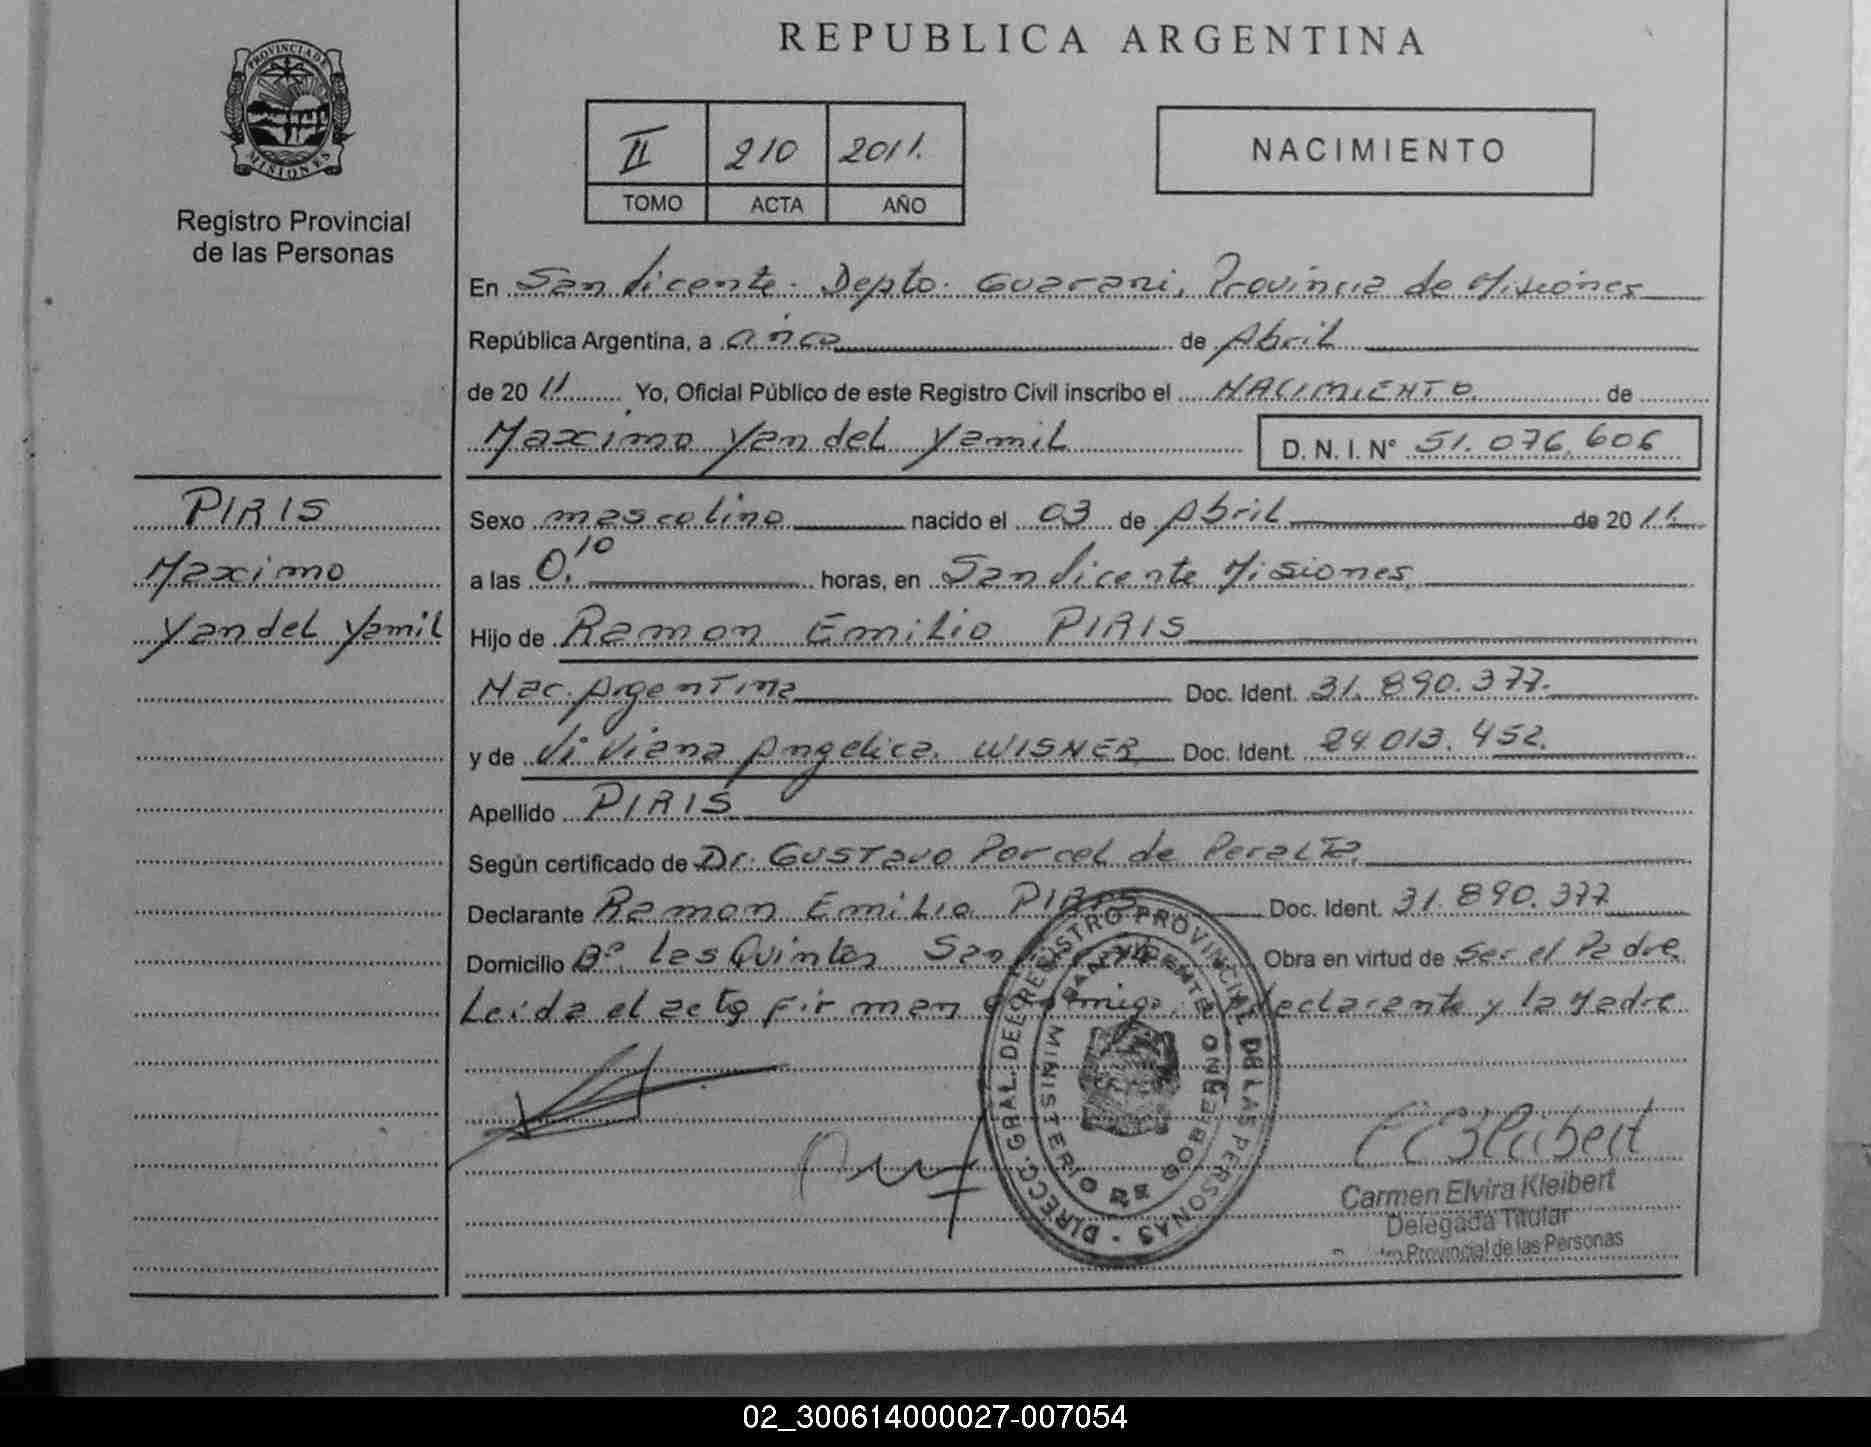 REPUBLICA ARGENTINA
PROVINCIA DE
MISIONES
Registro Provincial
de las Personas
II 210 2011.
TOMO ACTA AÑO
NACIMIENTO
En San Vicente. Depto. Guarani, Provincia de Misiones
República Argentina, a cinco de Abril
de 20 11 Yo, Oficial Público de este Registro Civil inscribo el NACIMIENTO de
Maximo Yandel Yamil D. N. I. N° 51.076.606
PIRIS
Maximo
Yandel Yamil
Sexo masculino nacido el 03 de Abril de 20 11.
a las 0.10 horas, en San Vicente Misiones
Hijo de Ramon Emilio PIRIS
Nac. Argentina Doc. Ident. 31.890.377.
y de Viviana Angelica. WISNER Doc. Ident. 24.013.452.
Apellido PIRIS
Según certificado de Dr. Gustavo Porcel de Peralta.
Declarante Ramon Emilio PIRIS Doc. Ident. 31.890.377
Domicilio B° Las Quintas San Vicente Obra en virtud de Ser el Padre
Leida el acta firman conmigo, declarante y la Madre
DIRECC. GRAL. DEL REGISTRO PROVINCIAL DE LAS PERSONAS -
SAN VICENTE
MINISTERIO DE GOBIERNO
Carmen Elvira Kleibert
Delegada Titular
Provincial de las Personas
02_300614000027-007054